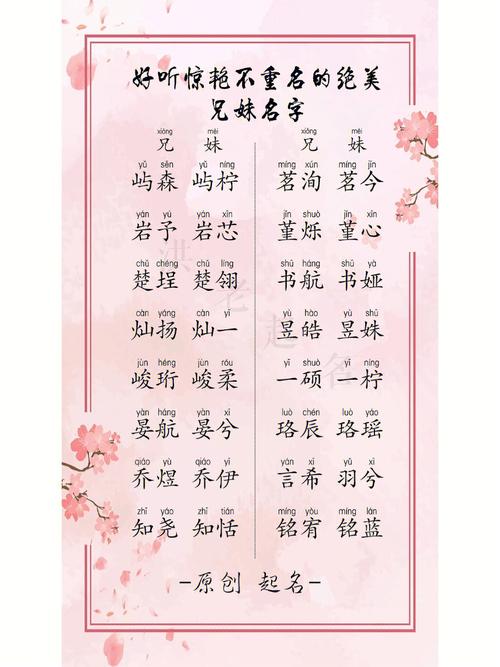 好听惊艳不重名的绝美
兄妹名字
xiōng mèi xiōng mèi
兄 妹 兄 妹
yǔ sēn yǔ níng míng xún míng jīn
屿森 屿柠 茗洵 茗今
yán yǔ yán xīn jǐn shuò jǐn xīn
岩予 岩芯 堇烁 堇心
chǔ chéng chǔ líng shū háng shū yà
楚埕 楚翎 书航 书娅
càn yáng càn yī yù hào yù shū
灿扬 灿一 昱皓 昱姝
jùn héng jùn róu yī shuò yī níng
峻珩 峻柔 一硕 一柠
yàn háng yàn xī luò chén luò yáo
晏航 晏兮 珞辰 珞瑶
qiáo yù qiáo yī yán xī yǔ xī
乔煜 乔伊 言希 羽兮
zhī yáo zhī tián míng yòu míng lán
知尧 知恬 铭宥 铭蓝
-原创 起名-
洪老起名